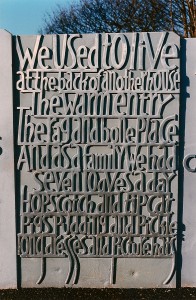 We Used to live
at the back of another house
The warm entry
The rag and bone Place
And as a family We had
seven loaves a day
Hopscotch and Rip Cat
Peas Pudding and Pickle
long dresses and